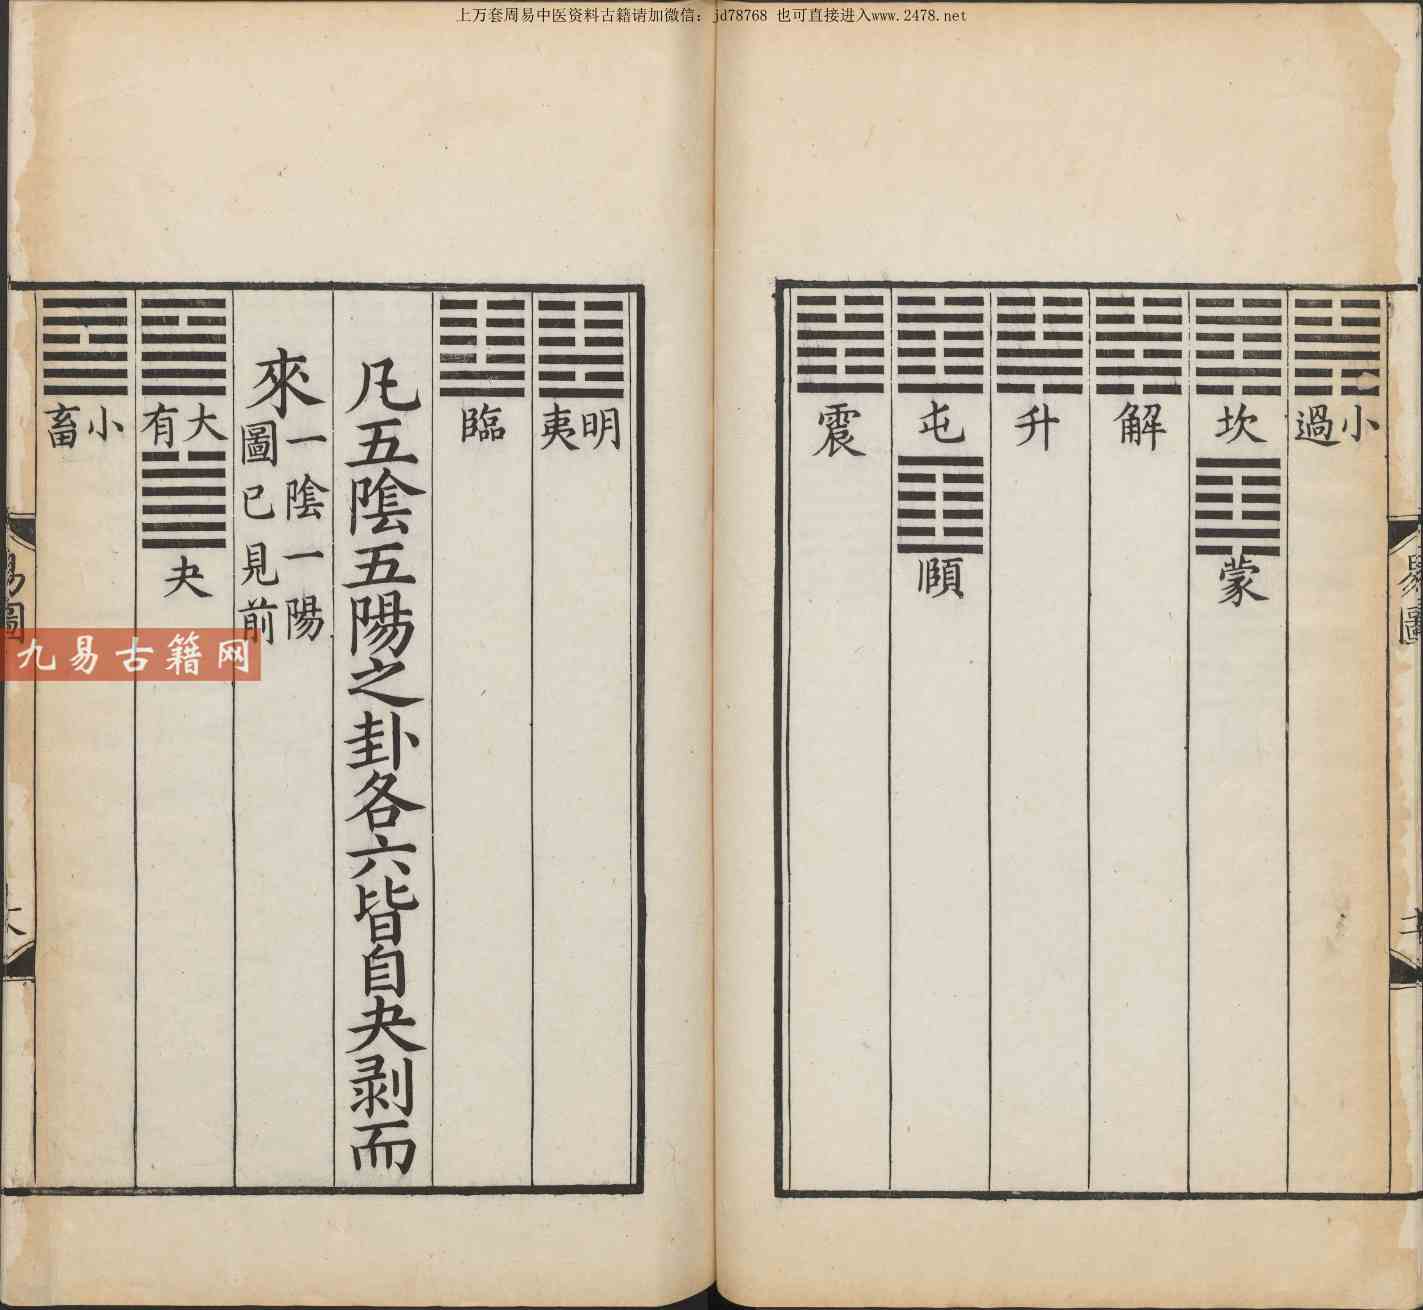 上万套周易中医资料古籍请加微信：jd78768 也可直接进入www.2478.net
小過
坎 蒙
解
升
屯 頤
震
明夷
臨
凡五陰五陽之卦各六皆自夬剥而
來一陰一陽圖已見前
大有 夬
小畜
易圖
九易古籍网